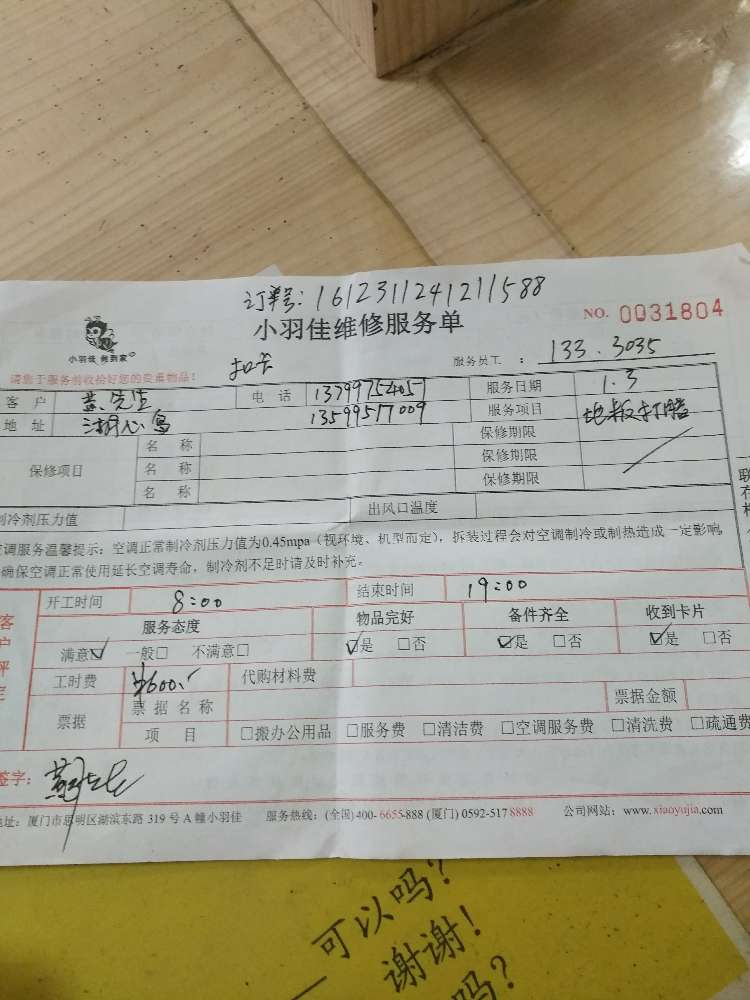 订单号：161231124121​1588
小羽佳维修服务单 NO. 0031804
小羽佳 佣到家
服务员工： 133.3035
请您于服务前收拾好您的贵重物品！ 扣卡
客户 黄先生 电话 13799754057 服务日期 1.3
地址 湖心岛 13599517009 服务项目 地板打腊
保修项目 名称 保修期限
名称 保修期限
名称 保修期限
制冷剂压力值 出风口温度
空调服务温馨提示：空调正常制冷剂压力值为0.45mpa（视环境、机型而定），拆装过程会对空调制冷或制热造成一定影响，
确保空调正常使用延长空调寿命，制冷剂不足时请及时补充。
客户评定
开工时间 8:00 结束时间 19:00
服务态度 物品完好 备件齐全 收到卡片
满意☑ 一般□ 不满意□ ☑是 □否 ☑是 □否 ☑是 □否
工时费 ¥600.- 代购材料费
票据 票据名称 票据金额
项目 □搬办公用品 □服务费 □清洁费 □空调服务费 □清洗费 □疏通费
签字：
地址：厦门市思明区湖滨东路 319 号 A 幢小羽佳 服务热线：(全国)400-6655-888 (厦门) 0592-517 8888 公司网站：www.xiaoyujia.com
可以吗？
谢谢！
吗？